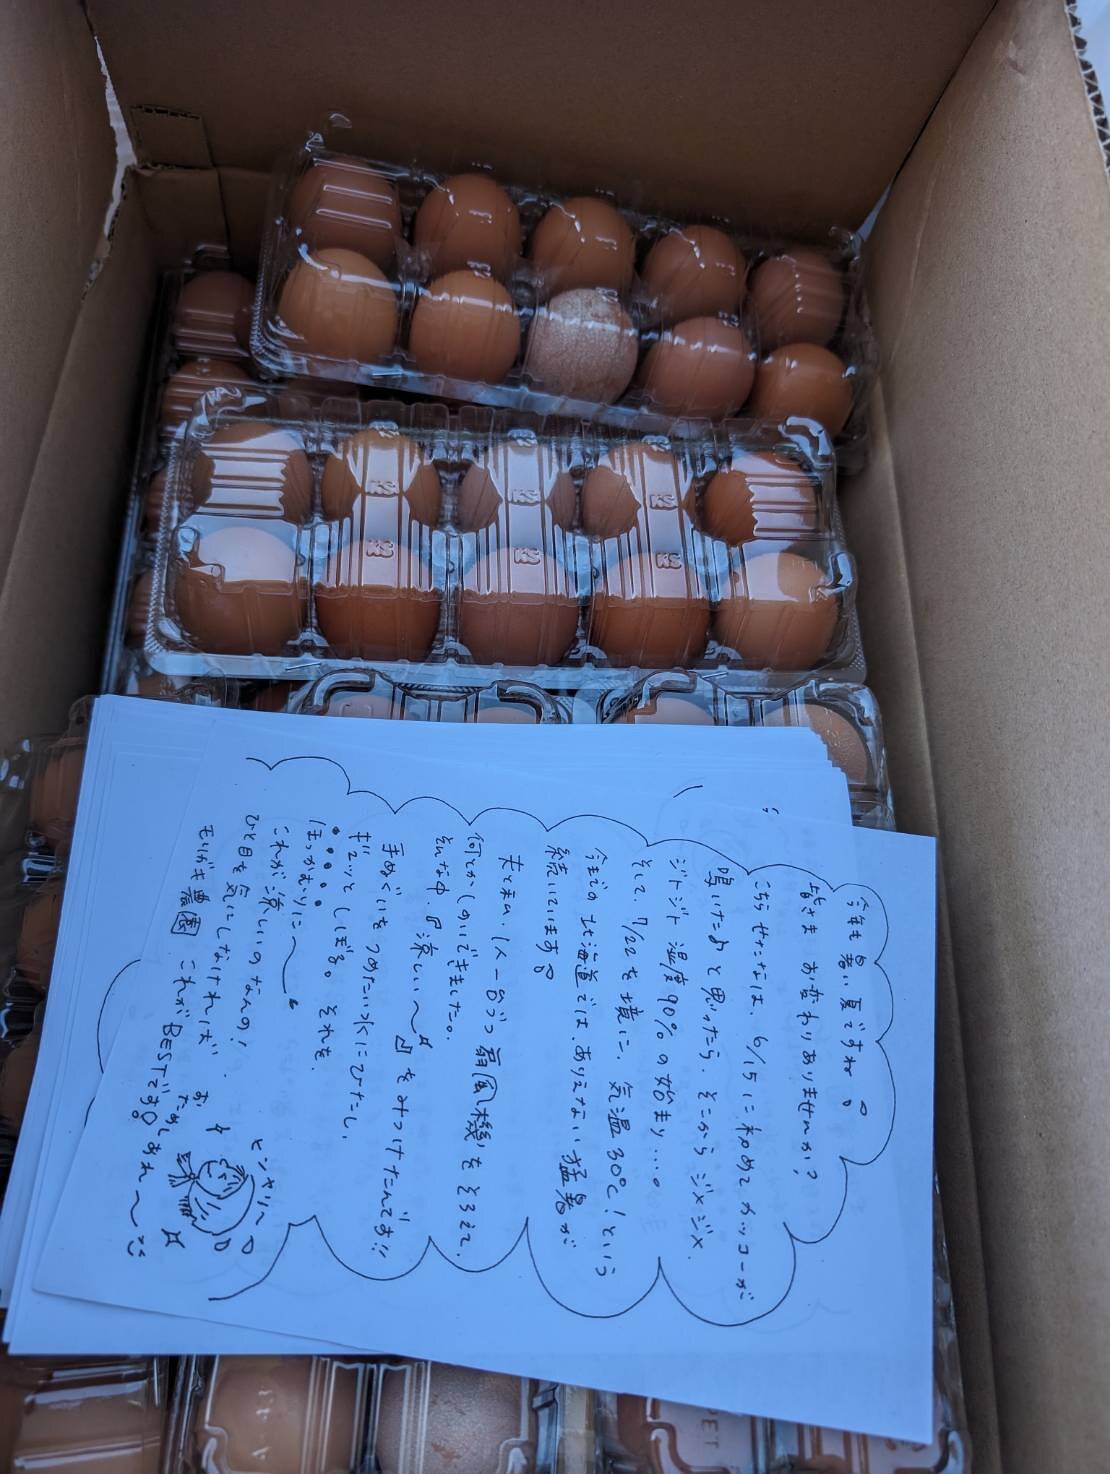 今年も暑い夏ですね。
皆さま お変わりありませんか?
こちら せたなは、6/15に初めてカッコーが
鳴いたな と思ったら、そこから ジメジメ、
ジトジト 湿度90%の始まり…。
そして、7/22を境に、気温30℃!という
今までの北海道では、ありえない猛暑が
続いています。
夫と私、1人一台づつ扇風機をそろえて、
何とかしのいできました。
そんな中、『涼しい〜』をみつけたんです!!
手ぬぐいをつめたい水にひたし、
ギュッとしぼる。それを、
ほっかむりに〜
これが涼しいのなんの!
ひと目を気にしなければ、
これがBESTです。
おためしあれ〜
ヒンヤリ〜
農園
KS KS KS KS
KS KS KS
PET